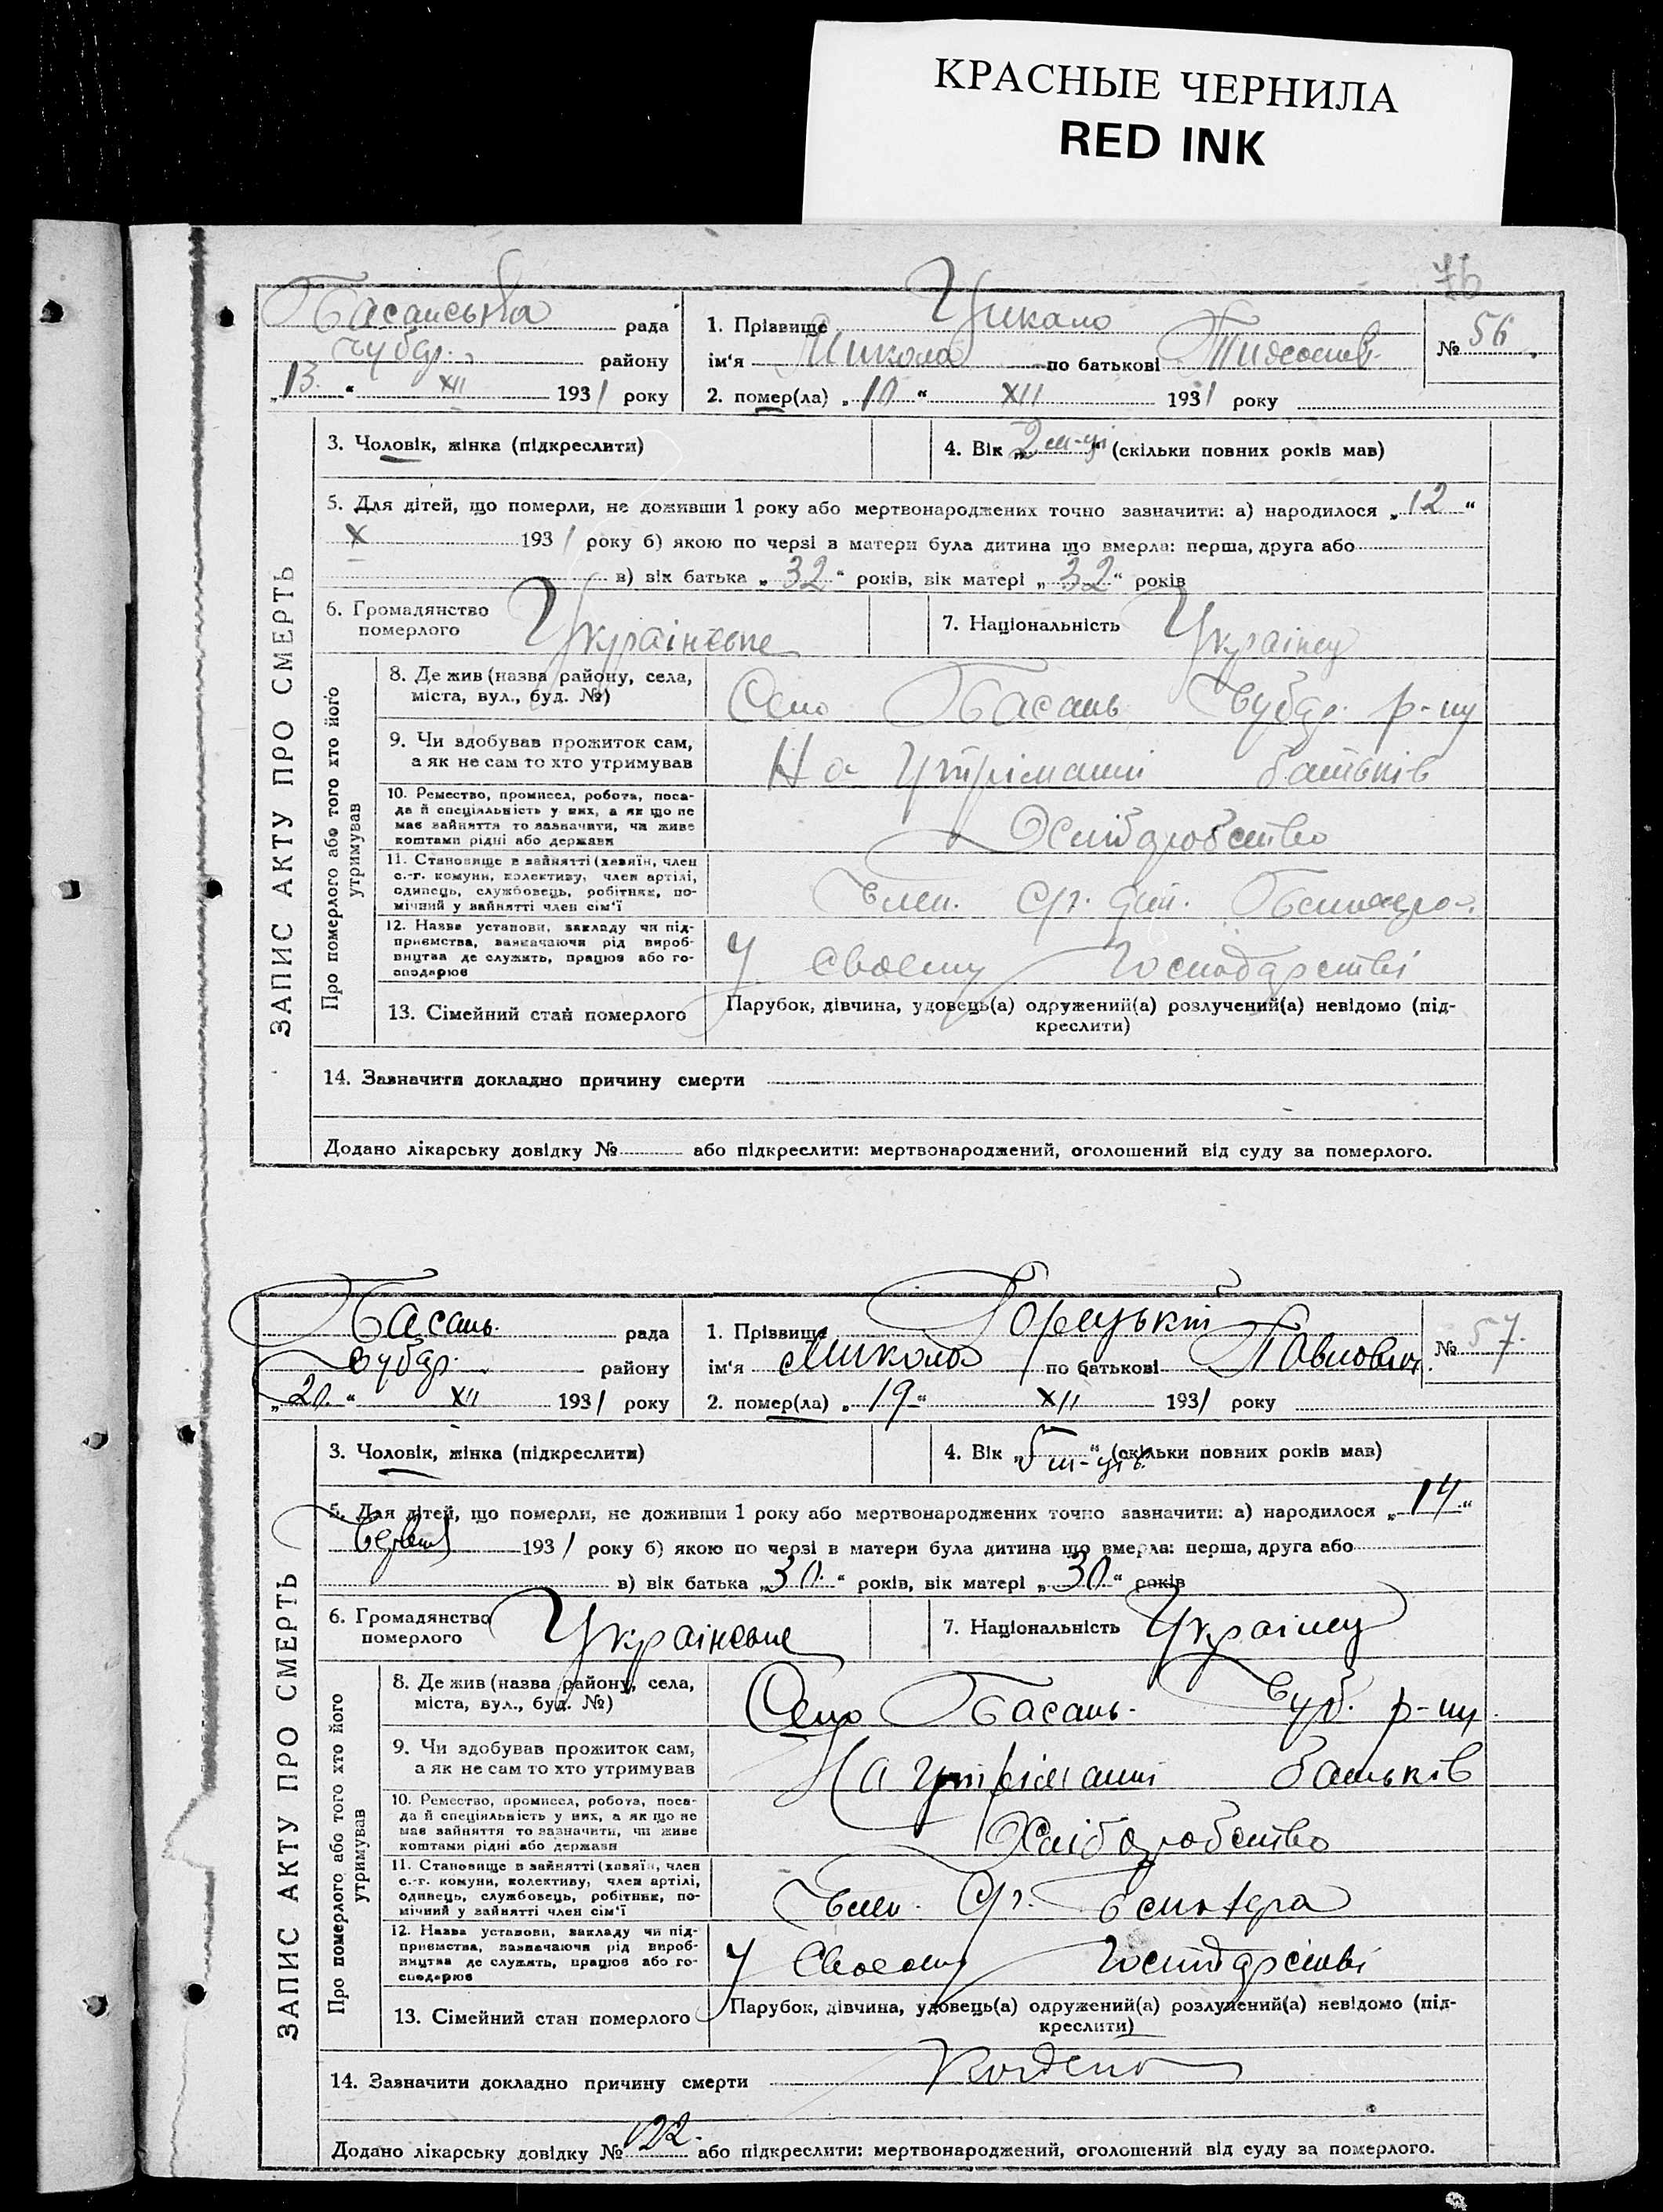 КРАСНЫЕ ЧЕРНИЛА
RED INK
76
Басанська рада
Чубар. району
„13“ XII 1931 року
1. Прізвище Цикало
ім'я Микола по батькові
№ 56
2. помер(ла) „10“ XII 1931 року
ЗАПИС АКТУ ПРО СМЕРТЬ
3. Чоловік, жінка (підкреслити)
4. Вік „2 м-ці“ (скільки повних років мав)
5. Для дітей, що померли, не доживши 1 року або мертвонароджених точно зазначити: а) народилося „12“
X 1931 року б) якою по черзі в матери була дитина що вмерла: перша, друга або
в) вік батька „32“ років, вік матері „32“ років
6. Громадянство померлого Українське
7. Національність Українец
Про померлого або того хто його утримував
8. Де жив (назва району, села,
міста, вул., буд. №)
Село Басань Чубар. р-ну
9. Чи здобував прожиток сам,
а як не сам то хто утримував
На утріманні батьків
10. Ремество, промисел, робота, поса-
да й спеціяльність у них, а як що не
має зайняття то зазначити, чи живе
коштами рідні або держави
Хліборобство
11. Становище в зайнятті (хазяїн, член
с.-г. комуни, колективу, член артілі,
одинець, службовець, робітник, по-
мічний у зайнятті член сім'ї
Член. С/г.
12. Назва установи, закладу чи під-
приємства, зазначаючи рід вироб-
ництва де служить, працює або го-
сподарює
У своему господарстві
13. Сімейний стан померлого
Парубок, дівчина, удовець(а) одружений(а) розлучений(а) невідомо (під-
креслити)
14. Зазначити докладно причину смерти
Додано лікарську довідку № або підкреслити: мертвонароджений, оголошений від суду за померлого.
Басань. рада
Чубар. району
„20.“ XII 1931 року
1. Прізвище Горецький
ім'я Микола по батькові Павлович.
№ 57.
2. помер(ла) „19“ XII 1931 року
ЗАПИС АКТУ ПРО СМЕРТЬ
3. Чоловік, жінка (підкреслити)
4. Вік „5 м-ців“ (скільки повних років мав)
5. Для дітей, що померли, не доживши 1 року або мертвонароджених точно зазначити: а) народилося „14“
1931 року б) якою по черзі в матери була дитина що вмерла: перша, друга або
в) вік батька „30.“ років, вік матері „30.“ років
6. Громадянство померлого Українське
7. Національність Українец
Про померлого або того хто його утримував
8. Де жив (назва району, села,
міста, вул., буд. №)
Село Басань. Чуб. р-ну
9. Чи здобував прожиток сам,
а як не сам то хто утримував
На утріманні батьків
10. Ремество, промисел, робота, поса-
да й спеціяльність у них, а як що не
має зайняття то зазначити, чи живе
коштами рідні або держави
Хліборобство
11. Становище в зайнятті (хазяїн, член
с.-г. комуни, колективу, член артілі,
одинець, службовець, робітник, по-
мічний у зайнятті член сім'ї
Член. С/г.
12. Назва установи, закладу чи під-
приємства, зазначаючи рід вироб-
ництва де служить, працює або го-
сподарює
У своему господарстві
13. Сімейний стан померлого
Парубок, дівчина, удовець(а) одружений(а) розлучений(а) невідомо (під-
креслити)
14. Зазначити докладно причину смерти
Додано лікарську довідку № 122. або підкреслити: мертвонароджений, оголошений від суду за померлого.